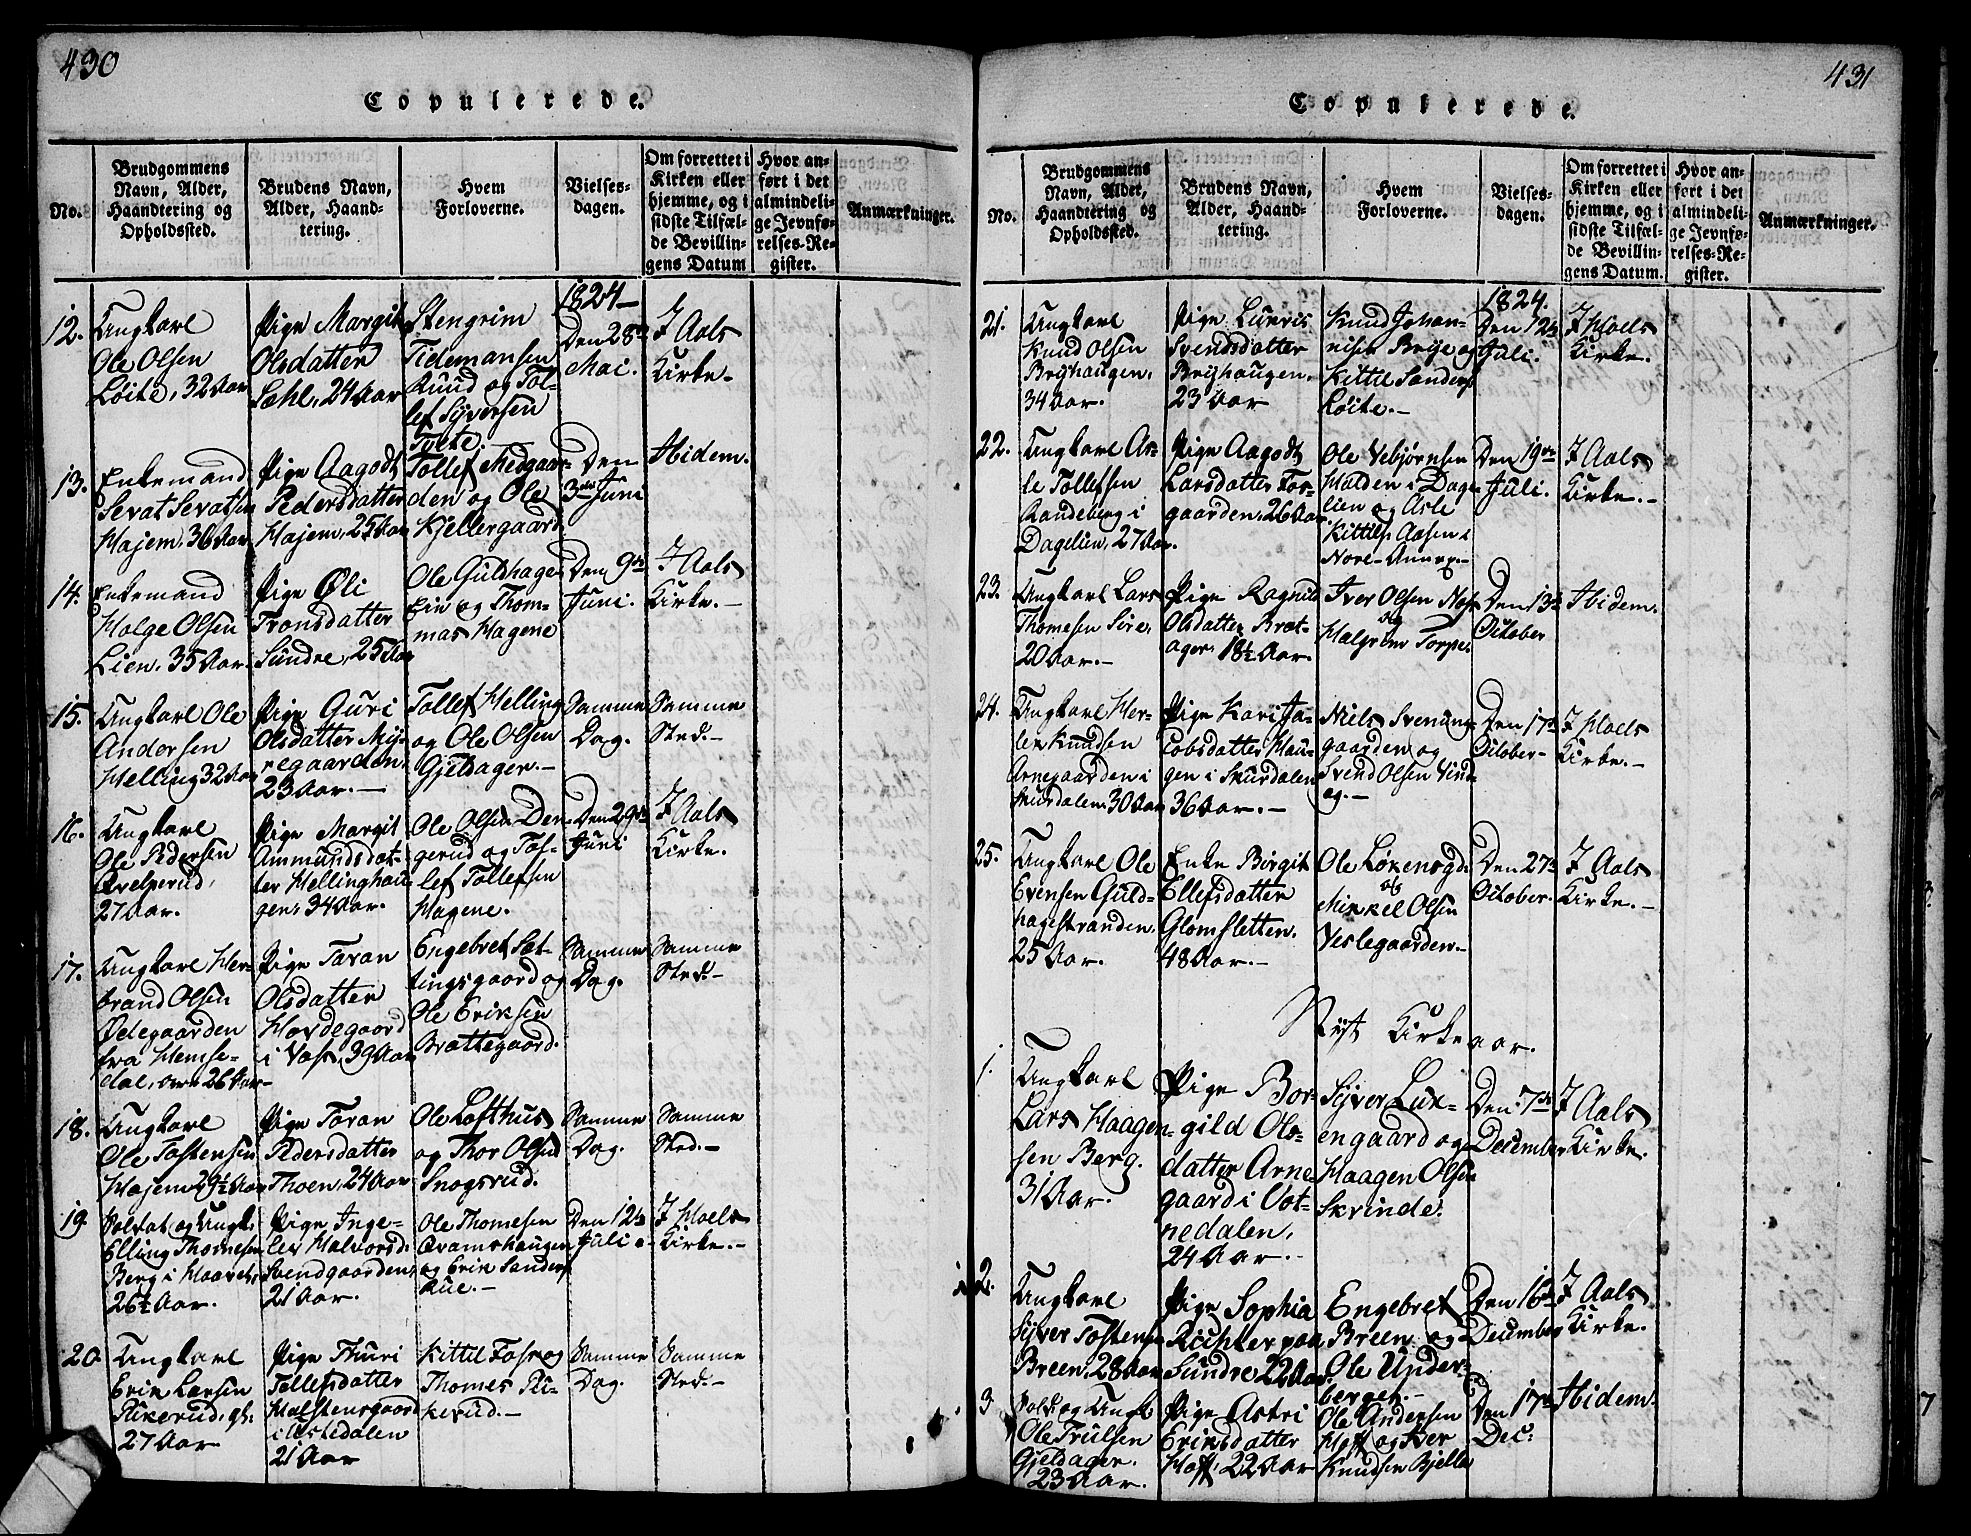 430
Copulerede.
No.
Brudgommens
Navn, Alder,
Haandtering og
Opholdssted.
Brudens Navn,
Alder, Haand-
tering.
Hvem
Forloverne.
Vielses-
dagen.
Om forrettet i
Kirken eller
hjemme, og i
sidste Tilfæl-
de Bevillin-
gens Datum
Hvor an-
ført i det
almindeli-
ge Jevnfø-
relses-Re-
gister.
Anmærkninger.
1824-
12.
Ungkarl
Ole Olsen
Löite, 32 Aar
Pige Margit
Olsdatter
Sæhl, 24 Aar
Stengrim
Tidemansen
Ruud og Tol-
lef Syversen
Tufte.
Den 28de
Mai.
I Aals
Kirke.
13.
Enkemand
Sevat Sevatsen
Hajem, 36 Aar
Pige Aagodt
Pedersdatter
Hajem, 25 Aar
Tollef Medgaar-
den og Ole
Kjellergaard
Den
3die Juni
Ibidem.
14.
Enkemand
Holge Olsen
Lien, 35 Aar.
Pige Öli
Tronsdatter
Sundre, 25 Aar
Ole Guldhage
Eie og Thom-
mas Hagene
Den 9de
Juni.
I Aals
Kirke.-
15.
Ungkarl Ole
Andersen
Helling 32 Aar
Pige Guri
Olsdatter My-
regaarden,
23 Aar.-
Tollef Helling
og Ole Olsen
Gjeldager.-
Samme
Dag.
Samme
Sted.-
16.
Ungkarl
Ole Pedersen
Qvelperud,
27 Aar.
Pige Margit
Ammundsdat-
ter Hellinghau-
gen, 34 Aar.
Ole Olsen Den-
gerud og Tol-
lef Tollefsen
Hagene.
Den 29de
Juni
I Aals
Kirke.
17.
Ungkarl Her-
brand Olsen
Ödegaarden
fra Hemse-
dal, over 26 Aar-
Pige Taran
Olsdatter
Hovdegaard
i Vats, 39 Aar
Engebret Sat-
tingsgaard og
Ole Eriksen
Brattegaard.
Samme
Dag.
Samme
Sted.-
18.
Ungkarl
Ole Tostensen
Hajem 29½ Aar
Pige Taran
Pedersdatter
Thoen, 24 Aar
Ole Lofthus
og Thor Olsen
Snogsrud.
Samme
Dag.
Samme
Sted.-
19
Soldat og Ungk.
Elling Thomesen
Berg i Haavet,
26½ Aar.
Pige Inge-
lev Halvorsd.
Svendgaarden,
21 Aar.
Ole Thomesen
Qvamshaugen
og Erik Sanders
Rue.-
Den 12te
Juli
I Hoels
Kirke.-
20
Ungkarl
Erik Larsen
Pikerud, gl:
27 Aar
Pige Thuri
Tollefsdatter
Halstensgaard
i Ustedalen
21 Aar
Kittil Foss og
Thomes Pi-
kerud.-
Samme
Dag.
Samme
Sted.-
431
Copulerede.
No.
Brudgommens
Navn, Alder,
Haandtering og
Opholdsted.
Brudens Navn,
Alder, Haand-
tering.
Hvem
Forloverne.
Vielses-
dagen.
Om forrettet i
Kirken eller
hjemme, og i
sidste Tilfæl-
de Bevillin-
gens Datum.
Hvor an-
ført i det
almindeli-
ge Jevnfø-
relses-Re-
gister.
Anmærkninger.
1824.
21.
Ungkarl
Knud Olsen
Bryhaugen,
34 Aar.
Pige Lurvis
Svendsdatter
Bryhaugen,
23 Aar
Knud Johan-
nisen Brye og
Kittil Sanders
Löite.-
Den 12te
Juli.
I Hoels
Kirke.
22.
Ungkarl As-
le Tollefsen
Randeberg i
Dagelien, 27 Aar.
Pige Aagodt
Larsdatter Tor-
gaarden, 26 Aar
Ole Vebjörnsen
Halden i Dage-
lien og Asle
Kittils Aasen i
Nore-Annex.-
Den 19de
Juli.
I Aals
Kirke.-
23.
Ungkarl Lars
Thomesen Sire,
20 Aar.-
Pige Ragnild
Olsdatter Bret-
ager, 18½ Aar.
Iver Olsen Næs
og
Halgrim Torpe.
Den 13de
October
Ibidem.
24.
Ungkarl Her-
lek Knudsen
Arnegaarden i
Skurdalen, 30 Aar
Pige Kari Ja-
cobsdatter Hau-
gen i Skurdalen
36 Aar.-
Niels Svenung-
gaarden og
Svend Olsen Vind-
eg.-
Den 17de
October-
I Hoels
Kirke.-
25.
Ungkarl Ole
Evensen Guld-
hagestranden,
25 Aar.
Enke Birgit
Ellefsdatter
Glomsletten,
48 Aar.-
Ole Löxensgd.
og
Mikkel Olsen
Veslegaarden.-
Den 27de
October.
I Aals
Kirke.-
Nyt Kirkeaar.
1.
Ungkarl
Lars Haagen-
sen Berg.
31 Aar.
Pige Bor-
gild Ols-
datter Arne-
gaard i Vot-
nedalen,
24 Aar.-
Syver Lux-
engaard og
Haagen Olsen
Skrinde.
Den 7de
December
I Aals
Kirke.
2.
Ungkarl
Syver Tostens
Breen, 28 Aar
Pige Sophia
Richter paa
Sundre 22 Aar.
Engebret
Breen og
Ole Under-
bergen.-
Den 16de
December
I Aals
Kirke.
3
Sold: og Ungk
Ole Trulsen
Gjeldager,
23 Aar.
Pige Astri
Eriksdatter
Hoff, 22 Aar
Ole Andersen
Hoff og Iver
Knudsen Bjella
Den 17de
Dec:
Ibidem.